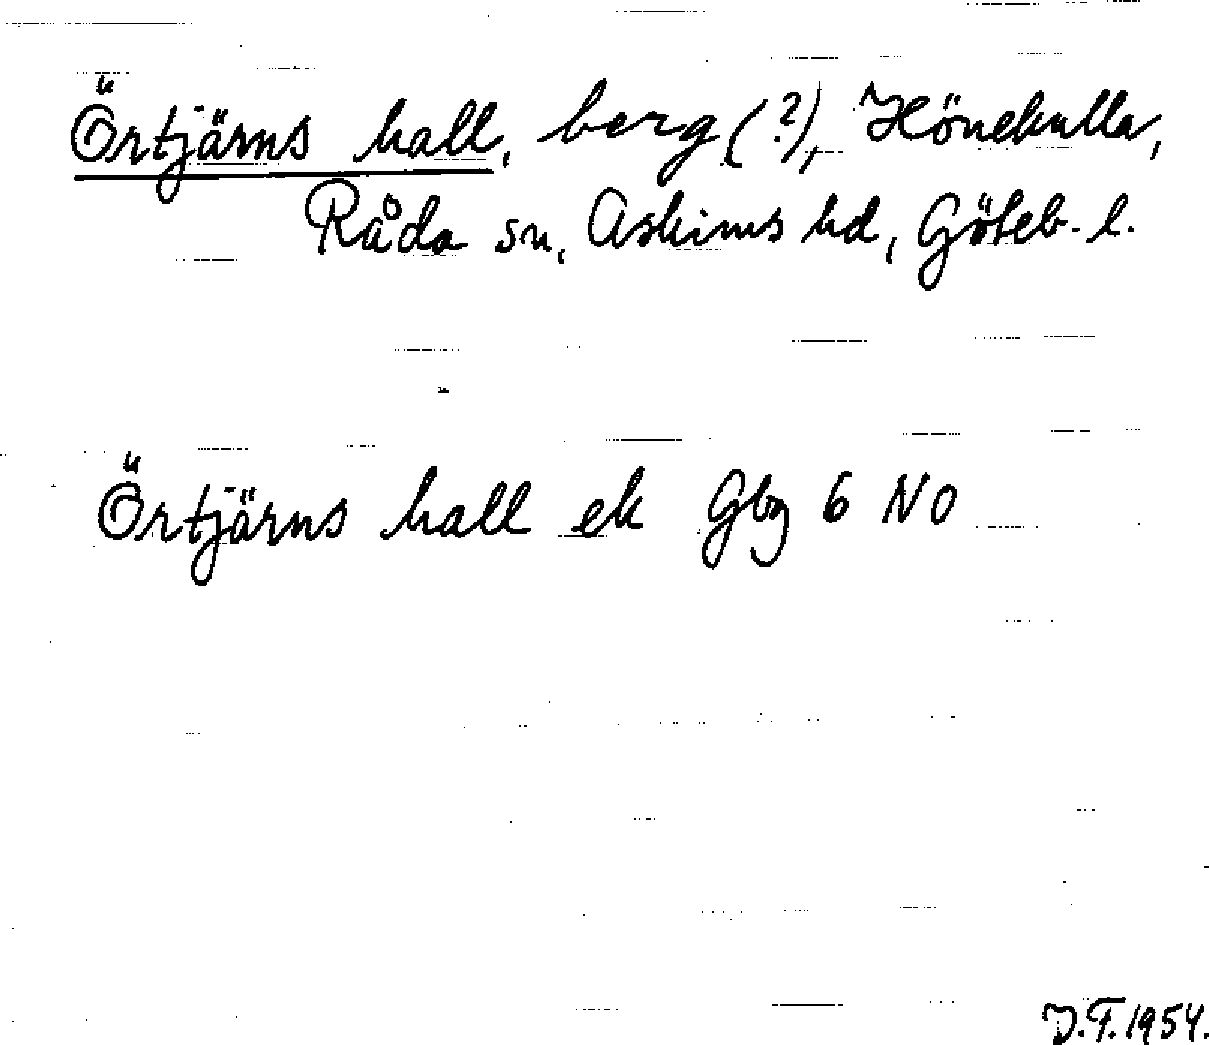 Örtjärns hall, berg (?), Hönekulla,
Råda sn, Askims hd, Göteb. l.
Örtjärns hall ek Gbg 6 NO
D.F. 1954.